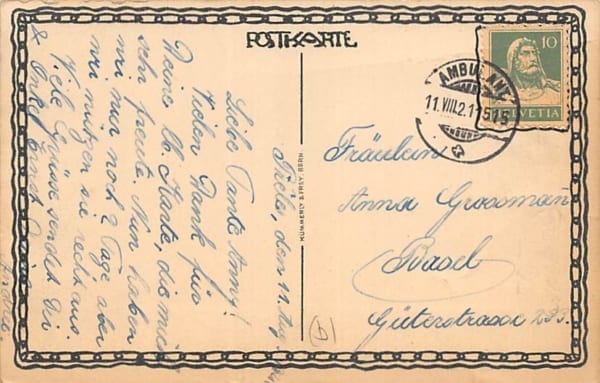 POSTKARTE
den 11. Aug.
Liebe Tante Anny!
Vielen Dank für
Deine lb. Karte, die mich
sehr freute. Nun haben
wir nur noch 2 Tage aber
wir nützen sie recht aus.
Viele Grüsse sendet Dir
& Onkel Ernst
HÜMMERLY & FREY, BERN
AMBULANT
11.VIII.21
515
10
HELVETIA
Fräulein
Anna Grossmann
Basel
Güterstrasse